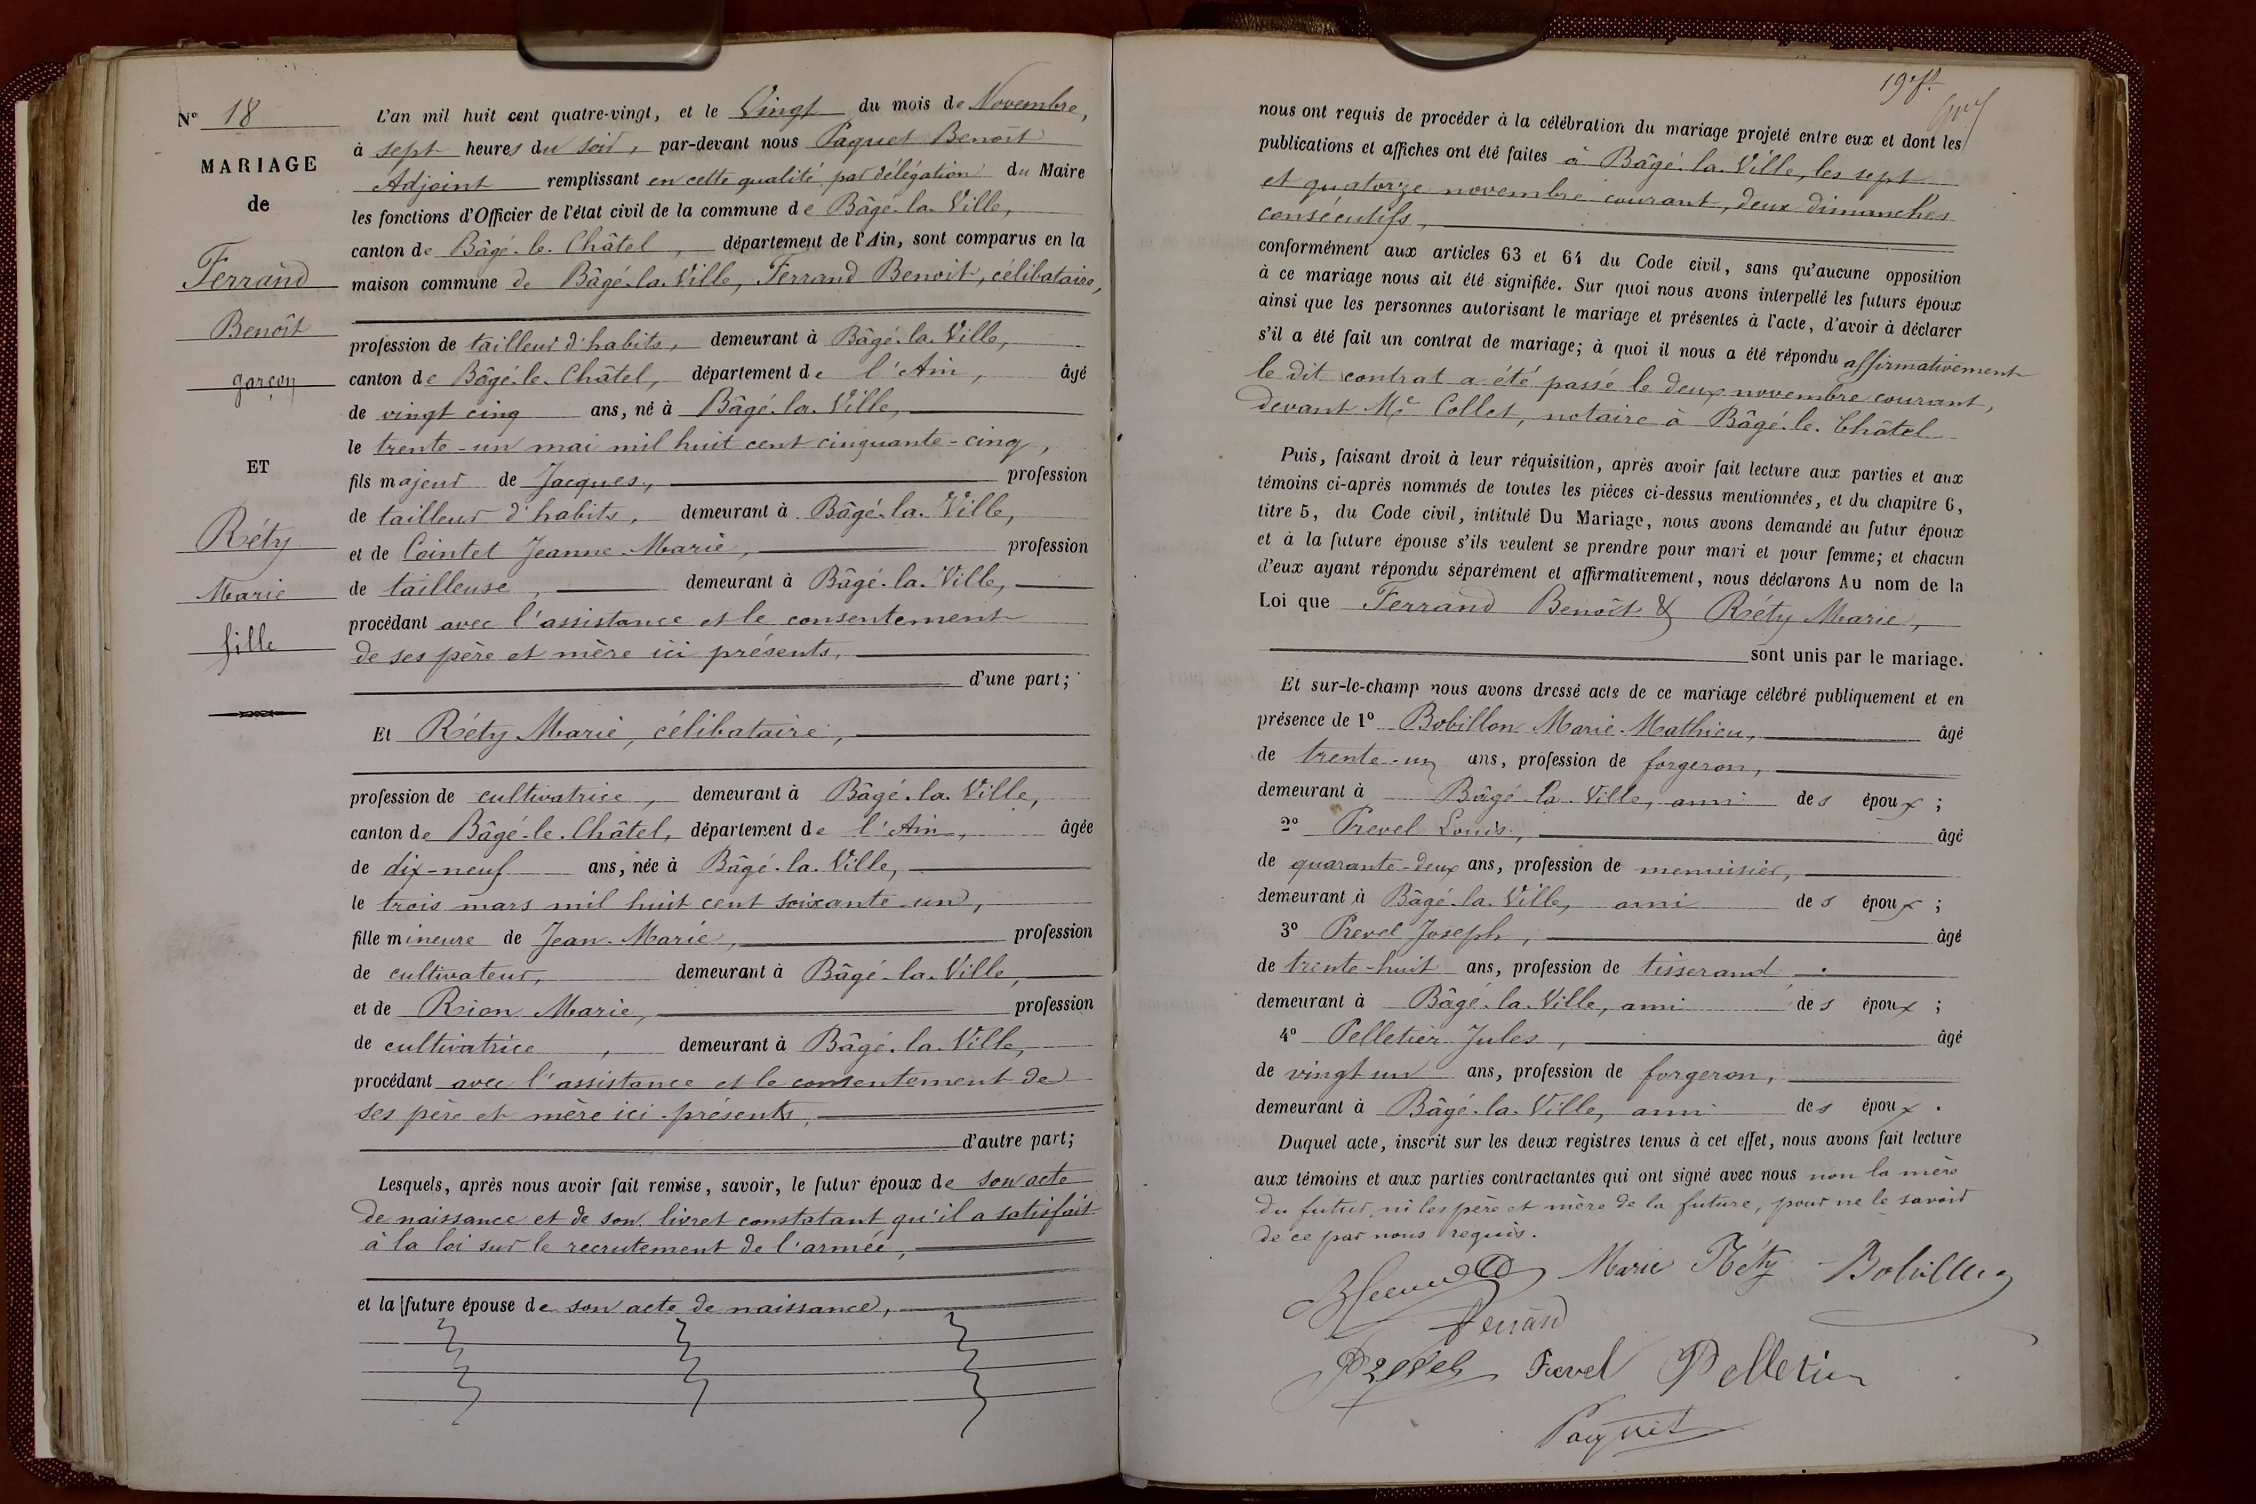 N° 18
MARIAGE
de
Ferrand
Benoît
garçon
ET
Réty
Marie
fille
L'an mil huit cent quatre-vingt, et le Vingt du mois de Novembre,
à sept heures du soir, par-devant nous Paquet Benoît
Adjoint remplissant en cette qualité par délégation du Maire
les fonctions d'Officier de l'état civil de la commune de Bâgé-la-Ville,
canton de Bâgé-le-Châtel, département de l'Ain, sont comparus en la
maison commune de Bâgé-la-Ville, Ferrand Benoit, célibataire,
profession de tailleur d'habits, demeurant à Bâgé-la-Ville,
canton de Bâgé-le-Châtel, département de l'Ain, âgé
de vingt cinq ans, né à Bâgé-la-Ville,
le trente-un mai mil huit cent cinquante-cinq,
fils majeur de Jacques, profession
de tailleur d'habits, demeurant à Bâgé-la-Ville,
et de Cointet Jeanne-Marie, profession
de tailleuse, demeurant à Bâgé-la-Ville,
procédant avec l'assistance et le consentement
de ses père et mère ici présents,
d'une part;
Et Réty Marie, célibataire,
profession de cultivatrice, demeurant à Bâgé-la-Ville,
canton de Bâgé-le-Châtel, département de l'Ain, âgée
de dix-neuf ans, née à Bâgé-la-Ville,
le trois mars mil huit cent soixante-un,
fille mineure de Jean-Marie, profession
de cultivateur, demeurant à Bâgé-la-Ville,
et de Rion Marie, profession
de cultivatrice, demeurant à Bâgé-la-Ville,
procédant avec l'assistance et le consentement de
ses père et mère ici présents,
d'autre part;
Lesquels, après nous avoir fait remise, savoir, le futur époux de son acte
de naissance et de son livret constatant qu'il a satisfait
à la loi sur le recrutement de l'armée,
et la future épouse de son acte de naissance,
nous ont requis de procéder à la célébration du mariage projeté entre eux et dont les
publications et affiches ont été faites à Bâgé-la-Ville, les sept
et quatorze novembre courant, deux dimanches
consécutifs,
conformément aux articles 63 et 64 du Code civil, sans qu'aucune opposition
à ce mariage nous ait été signifiée. Sur quoi nous avons interpellé les futurs époux
ainsi que les personnes autorisant le mariage et présentes à l'acte, d'avoir à déclarer
s'il a été fait un contrat de mariage; à quoi il nous a été répondu affirmativement
le dit contrat a été passé le deux novembre courant,
devant Me Collet, notaire à Bâgé-le-Châtel
Puis, faisant droit à leur réquisition, après avoir fait lecture aux parties et aux
témoins ci-après nommés de toutes les pièces ci-dessus mentionnées, et du chapitre 6,
titre 5, du Code civil, intitulé Du Mariage, nous avons demandé au futur époux
et à la future épouse s'ils veulent se prendre pour mari et pour femme; et chacun
d'eux ayant répondu séparément et affirmativement, nous déclarons Au nom de la
Loi que Ferrand Benoît & Réty Marie,
sont unis par le mariage.
Et sur-le-champ nous avons dressé acte de ce mariage célébré publiquement et en
présence de 1° Bobillon Marie-Mathieu, âgé
de trente-un ans, profession de forgeron,
demeurant à Bâgé-la-Ville, ami des époux;
2° Prevel Louis, âgé
de quarante-deux ans, profession de menuisier,
demeurant à Bâgé-la-Ville, ami des époux;
3° Prevel Joseph, âgé
de trente-huit ans, profession de tisserand
demeurant à Bâgé-la-Ville, ami des époux;
4° Pelletier Jules, âgé
de vingt un ans, profession de forgeron,
demeurant à Bâgé-la-Ville, ami des époux.
Duquel acte, inscrit sur les deux registres tenus à cet effet, nous avons fait lecture
aux témoins et aux parties contractantes qui ont signé avec nous non la mère
du futur, ni les père et mère de la future, pour ne le savoir
de ce par nous requis.
Marie Réty Bobillon
Ferrand
Prevel Prevel Pelletier
Paquet